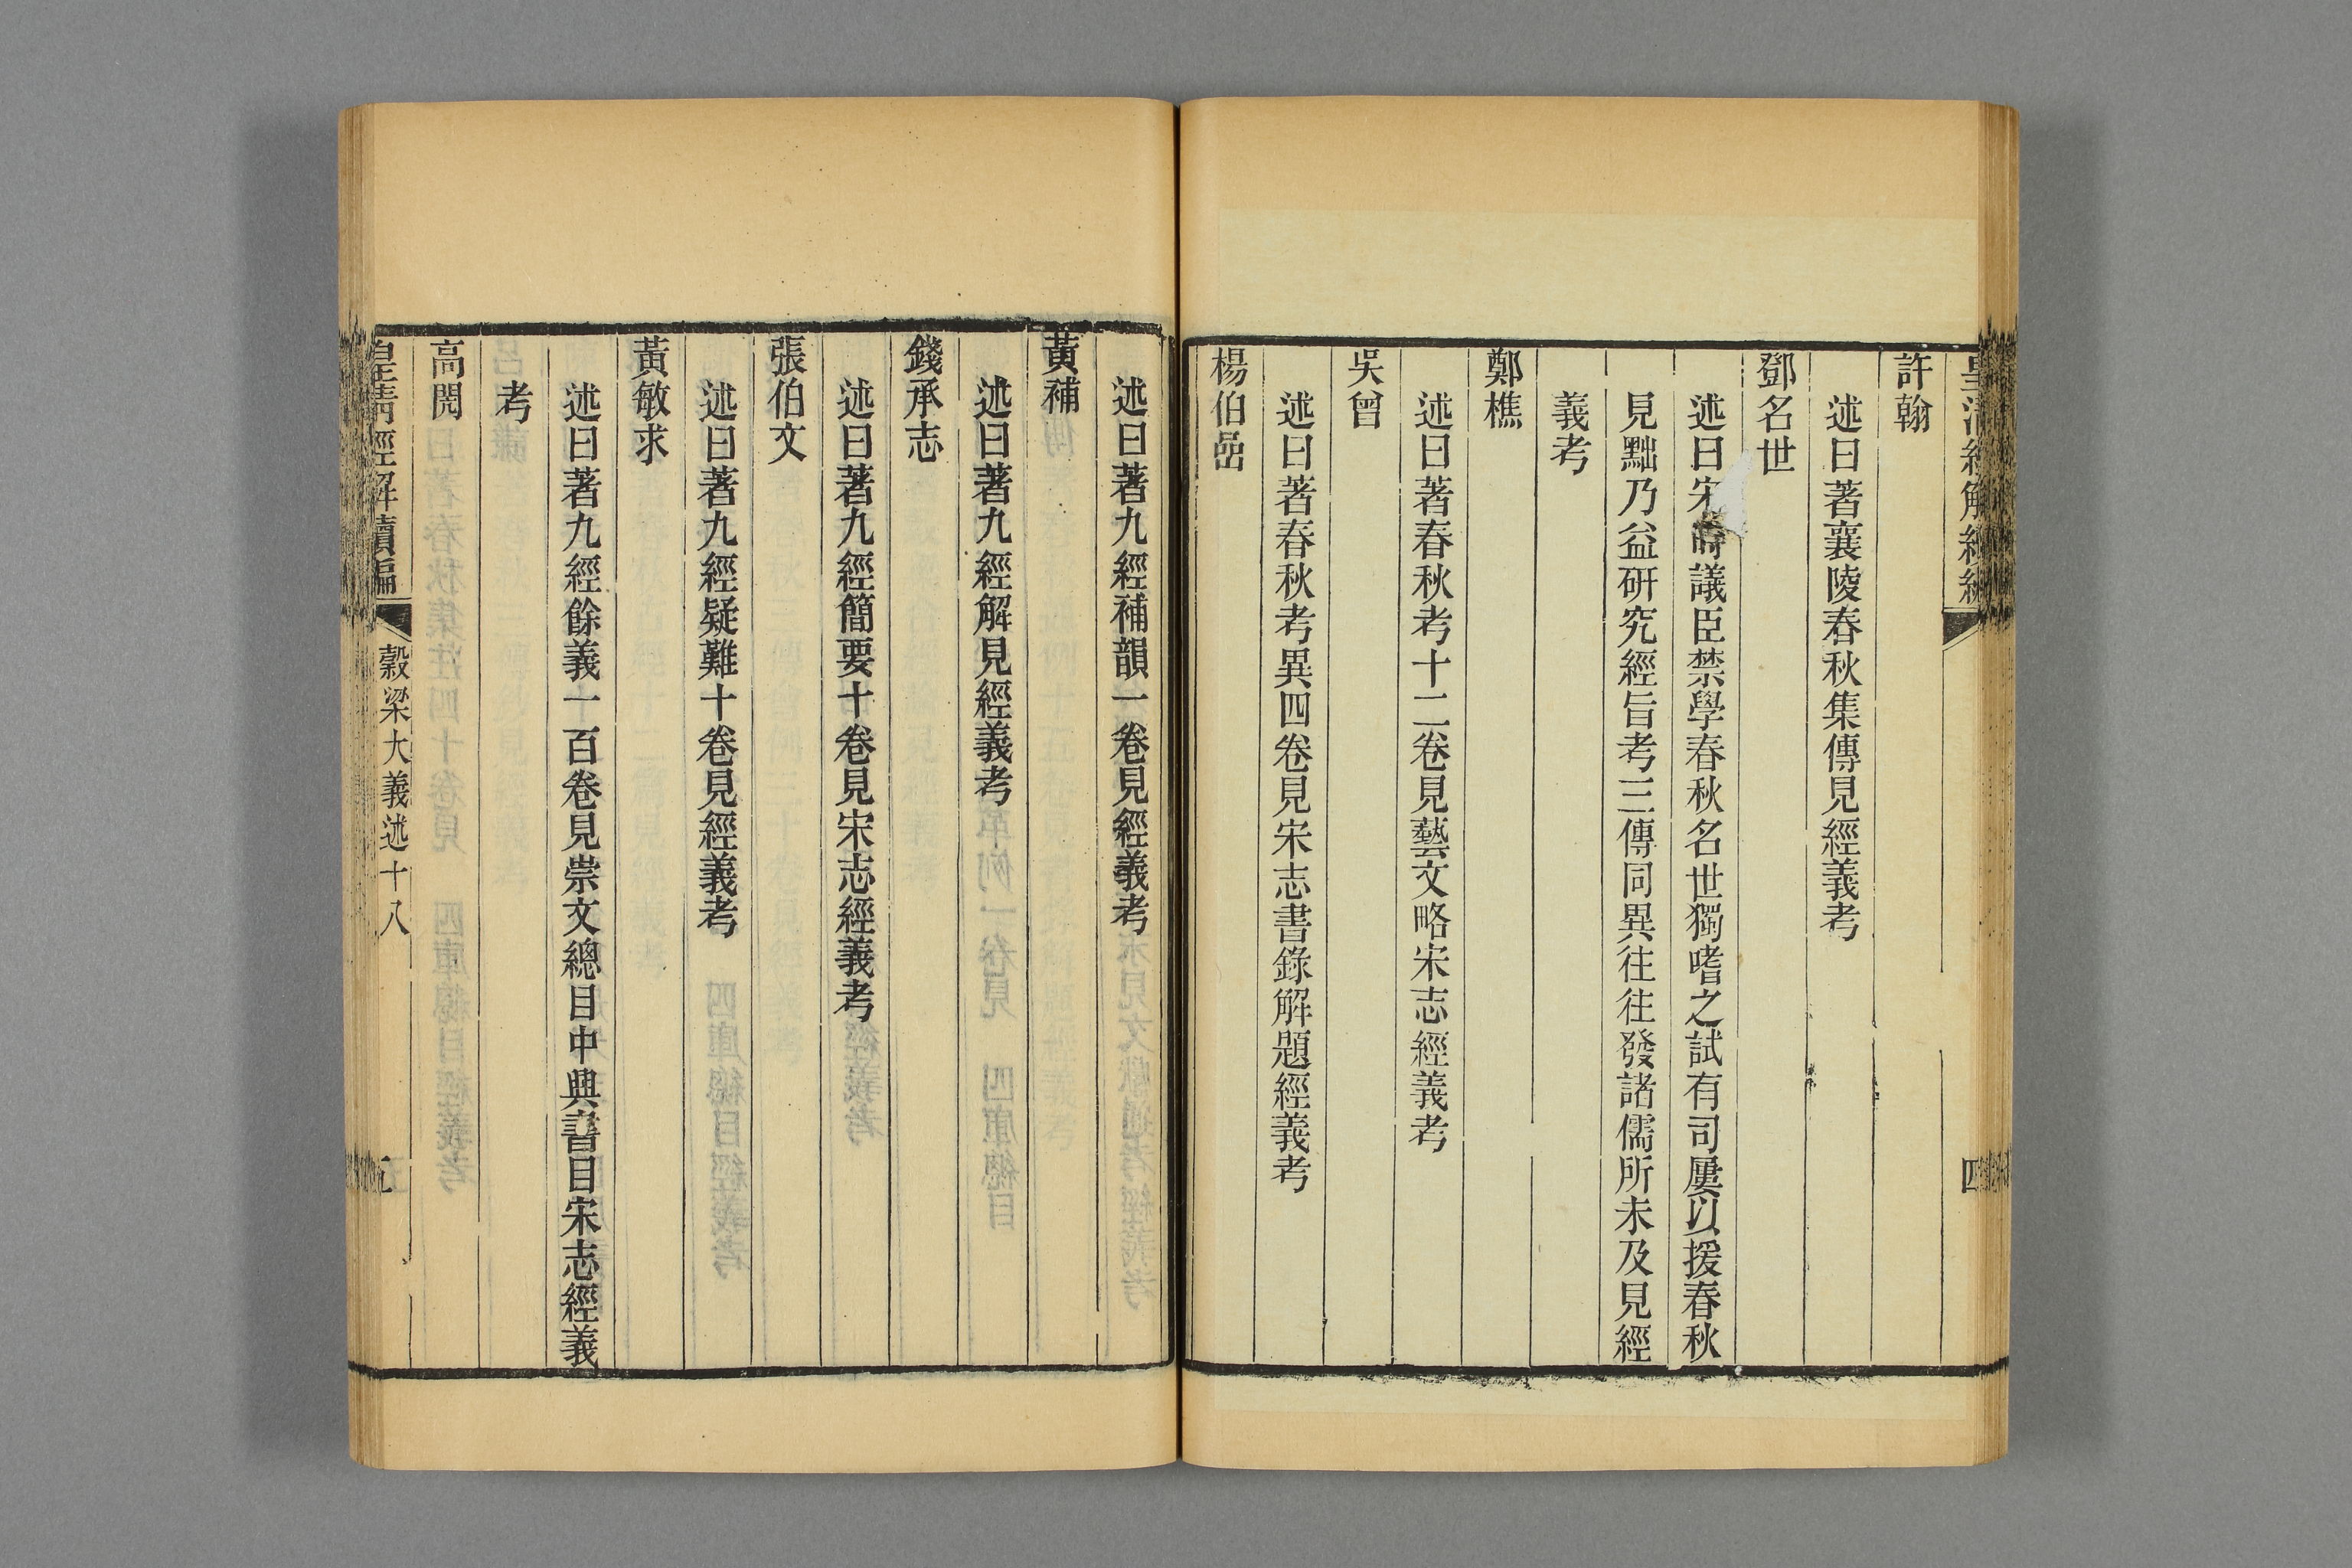 許翰
述曰著襄陵春秋集傳見經義考
鄧名世
述曰宋時議臣禁學春秋名世獨嗜之試有司屢以援春秋
見黜乃益研究經旨考三傳同異往往發諸儒所未及見經
義考
鄭樵
述曰著春秋考十二卷見藝文略宋志經義考
吳曾
述曰著春秋考異四卷見宋志書錄解題經義考
楊伯嵒
述曰著九經補韻一卷見經義考
黃補
述曰著九經解見經義考
錢承志
述曰著九經簡要十卷見宋志經義考
張伯文
述曰著九經疑難十卷見經義考
黃敏求
述曰著九經餘義一百卷見崇文總目中興書目宋志經義
考
高閌
皇清經解續編 穀梁大義述十八 五